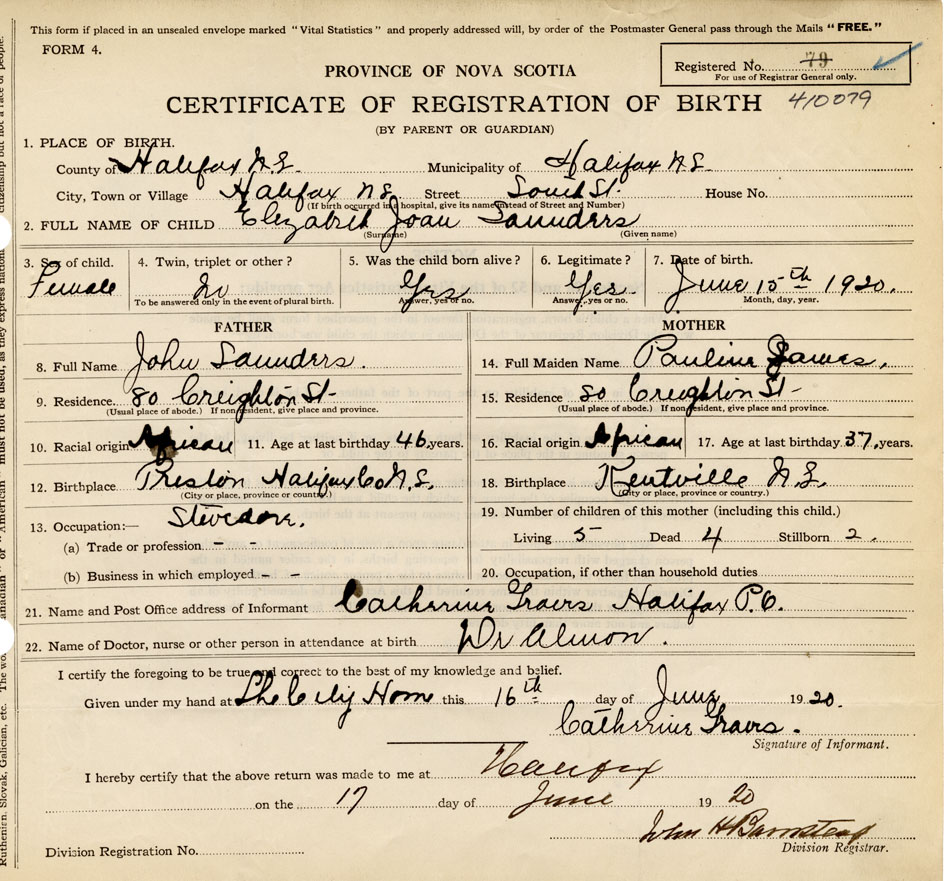 This form if placed in an unsealed envelope marked "Vital Statistics" and properly addressed will, by order of the Postmaster General pass through the Mails "FREE."
FORM 4.
Registered No. 79
For use of Registrar General only.
PROVINCE OF NOVA SCOTIA
CERTIFICATE OF REGISTRATION OF BIRTH 410079
(BY PARENT OR GUARDIAN)
1. PLACE OF BIRTH.
County of Halifax N.S. Municipality of Halifax N.S.
City, Town or Village Halifax N.S. Street South St. House No.
(If birth occurred in a hospital, give its name instead of Street and Number)
2. FULL NAME OF CHILD Elizabeth Joan Saunders
(Surname) (Given name)
3. Sex of child. 4. Twin, triplet or other? 5. Was the child born alive? 6. Legitimate? 7. Date of birth.
Female No Yes Yes June 15th 1920.
To be answered only in the event of plural birth. Answer, yes or no. Answer, yes or no. Month, day, year.
FATHER
8. Full Name John Saunders.
9. Residence. 80 Creighton St.
(Usual place of abode.) If non resident, give place and province.
10. Racial origin African 11. Age at last birthday 46, years.
12. Birthplace Preston Halifax Co N.S.
(City or place, province or country.)
13. Occupation:— Stevedore.
(a) Trade or profession – –
(b) Business in which employed – –
MOTHER
14. Full Maiden Name Pauline James.
15. Residence 80 Creighton St.
(Usual place of abode.) If non resident, give place and province.
16. Racial origin African 17. Age at last birthday 37, years.
18. Birthplace Kentville N.S.
(City or place, province or country.)
19. Number of children of this mother (including this child.)
Living 5 Dead 4 Stillborn 2.
20. Occupation, if other than household duties
21. Name and Post Office address of Informant Catherine Graves Halifax P.O.
22. Name of Doctor, nurse or other person in attendance at birth Dr Almon.
I certify the foregoing to be true and correct to the best of my knowledge and belief.
Given under my hand at The City Home this 16th day of June 1920.
Catherine Graves.
Signature of Informant.
I hereby certify that the above return was made to me at Halifax
on the 17 day of June 1920
John H Barnstead
Division Registrar.
Division Registration No.